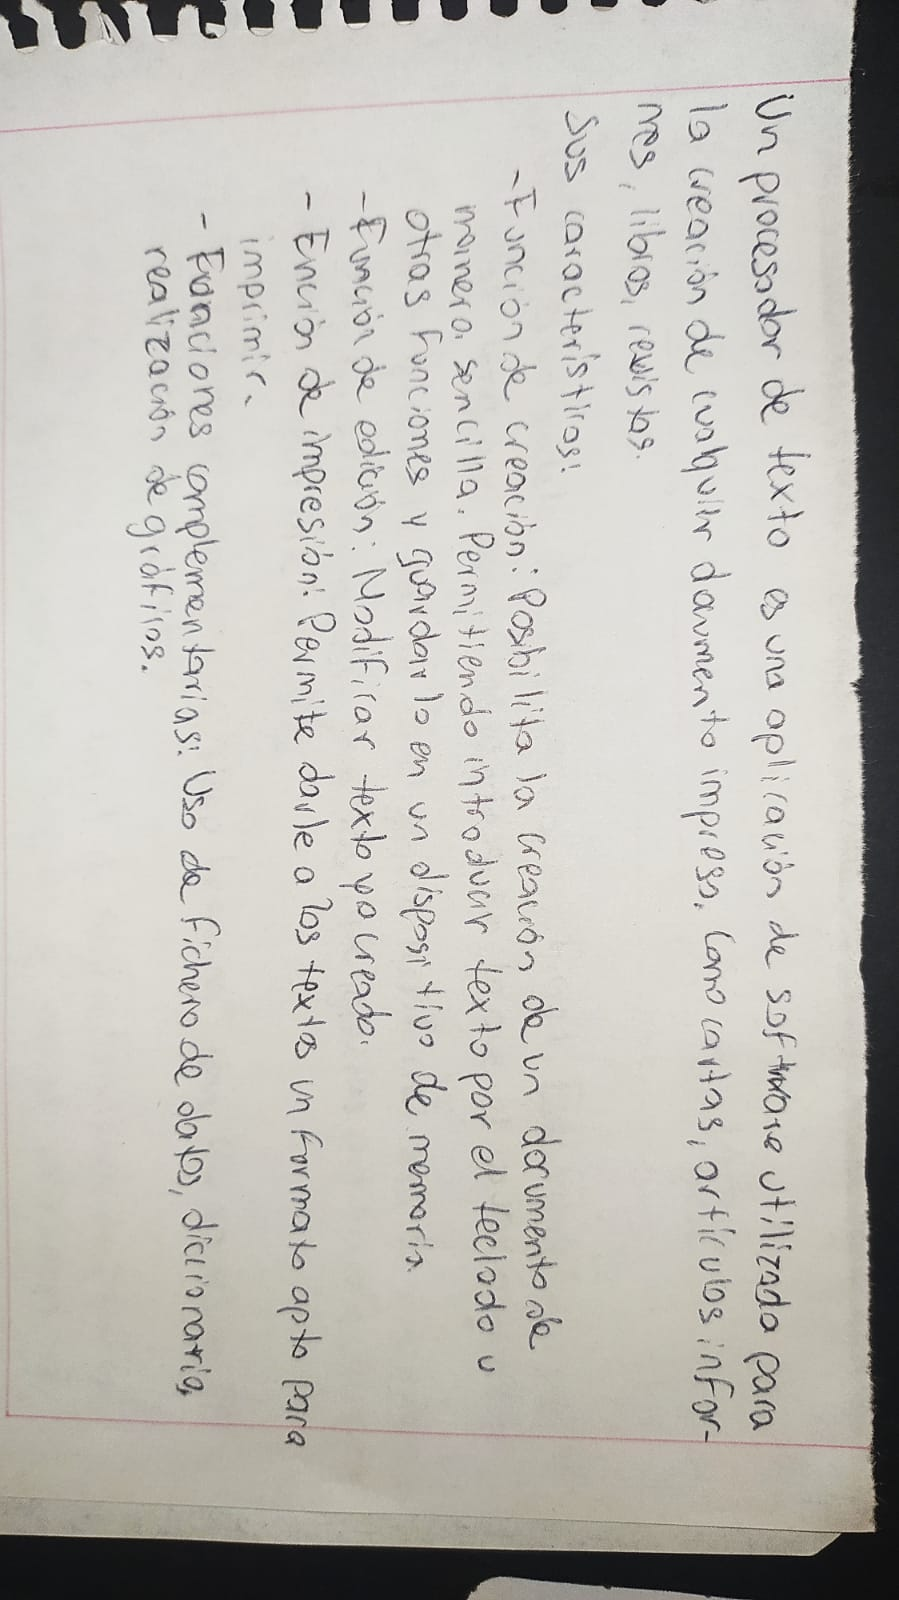 Un procesador de texto es una aplicación de software utilizada para
la creación de cualquier documento impreso. Como cartas, artículos infor-
mes, libros, revistas.
Sus caracteristicas:
- Función de creación: Posibilita la creación de un documento de
manera sencilla. Permitiendo introducir texto por el teclado u
otras funciones y guardarlo en un dispositivo de memoria.
- Función de edición: Modificar texto ya creado.
- Función de impresión: Permite darle a los textos un formato apto para
imprimir.
- Funciones complementarias: Uso de fichero de datos, diccionario,
realización de gráficos.